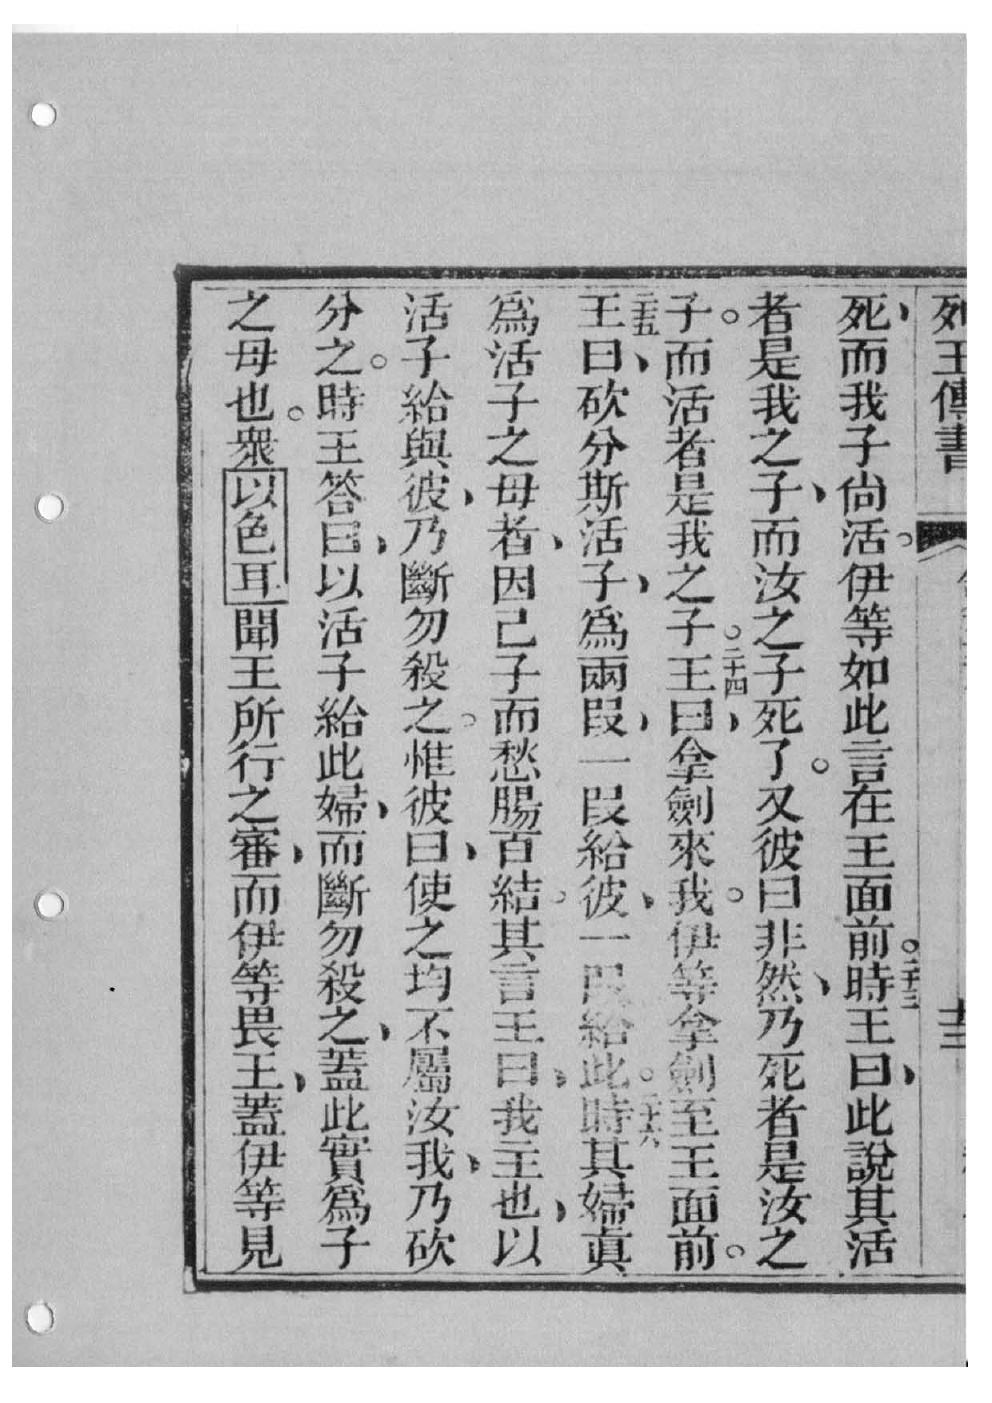 列王傳書
死、而我子尚活。伊等如此言在王面前。二十三時王曰、此說其活
者是我之子、而汝之子死了。又彼曰非然、乃死者是汝之
子。而活者是我之子。二十四王曰、拿劍來我。伊等拿劍至王面前。
二十五王曰、砍分斯活子、爲兩段、一段給彼、一段給此。二十六時其婦眞
爲活子之母者、因己子而愁腸百結。其言王曰、我主也、以
活子給與彼、乃斷勿殺之。惟彼曰、使之均不屬汝我、乃砍
分之。時王答曰、以活子給此婦、而斷勿殺之、蓋此實爲子
之母也。衆以色耳聞王所行之審、而伊等畏王、蓋伊等見